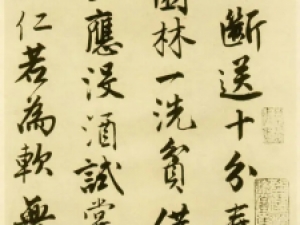 斷送十分春
園林一洗貧借
應浸酒試嘗
仁若為軟無